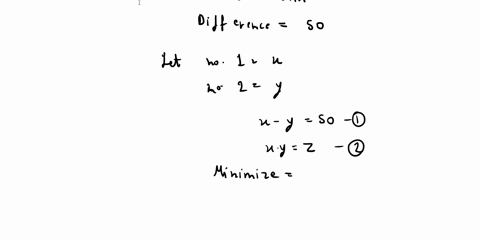 Difference = 50
Let no. 1 = x
no 2 = y
x - y = 50 - ①
x.y = Z - ②
Minimize =